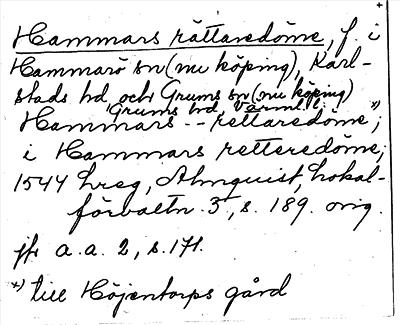 +
Hammars rättaredöme, f. i
Hammarö sn (nu köping), Karl-
stads hd och Grums sn (nu köping)
Grums hd, Värml. l.
"Hammars -- rettaredöme" +),
i Hammars retteredöme,
1544 hreg, Almquist, Lokal-
förvaltn. 3, s. 189. orig.
jfr a.a. 2, s. 171.
+) till Höjentorps gård